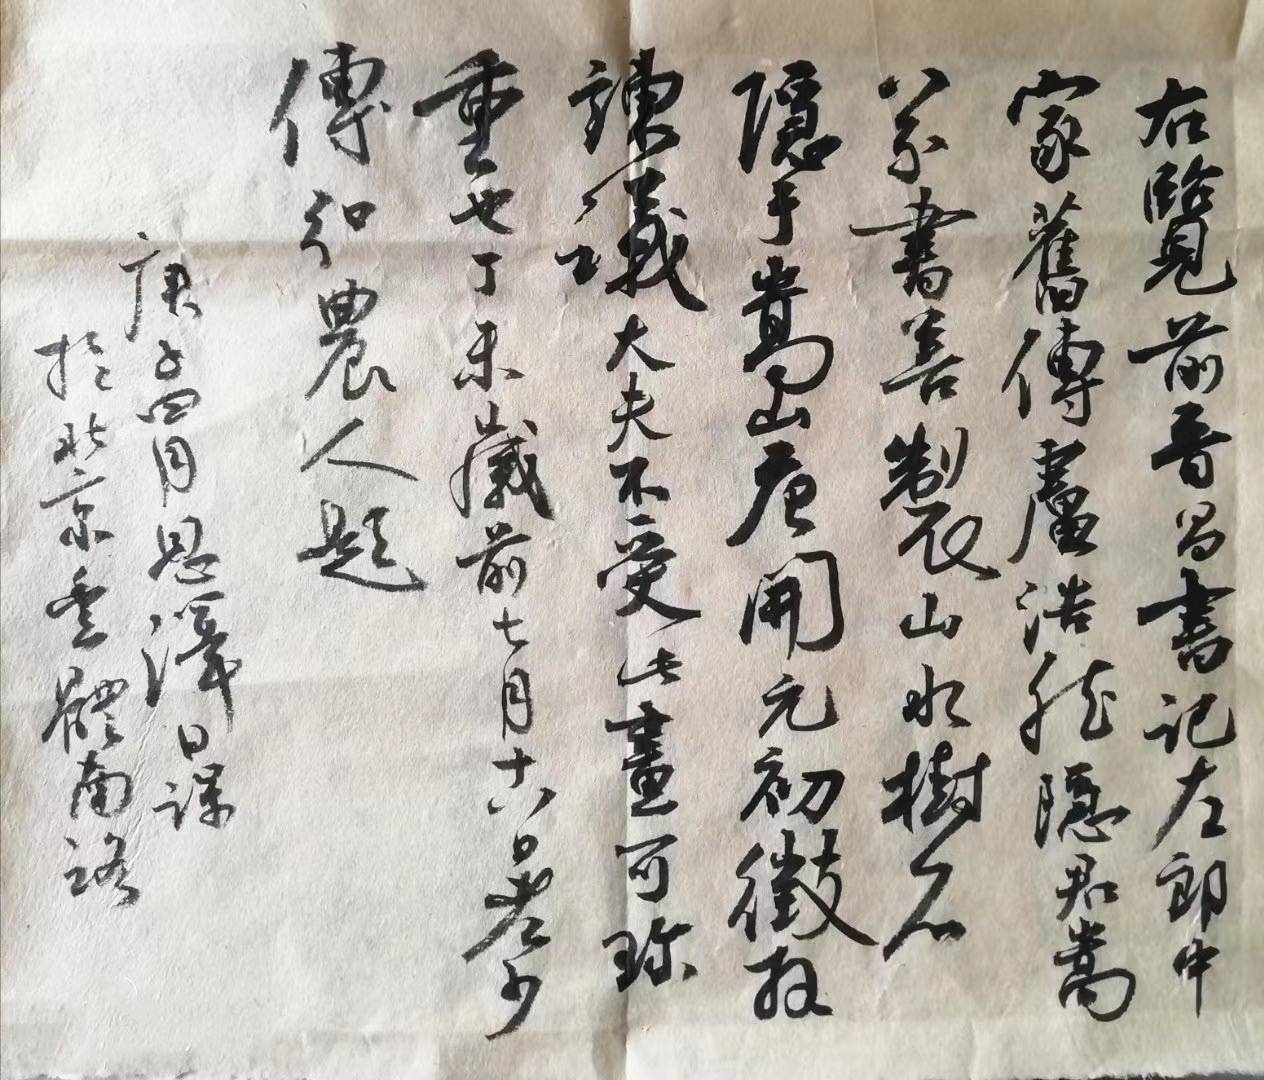 右覽前晉昌書記左郎中
家舊傳盧浩然隱君嵩
八分書善製山水樹石
隱于嵩山唐開元初徵拜
諫議大夫不受此畫可珍
重也丁未歲前七月十八日老少
傅弘農人題
庚子四月恩日課
於北京奧體南路